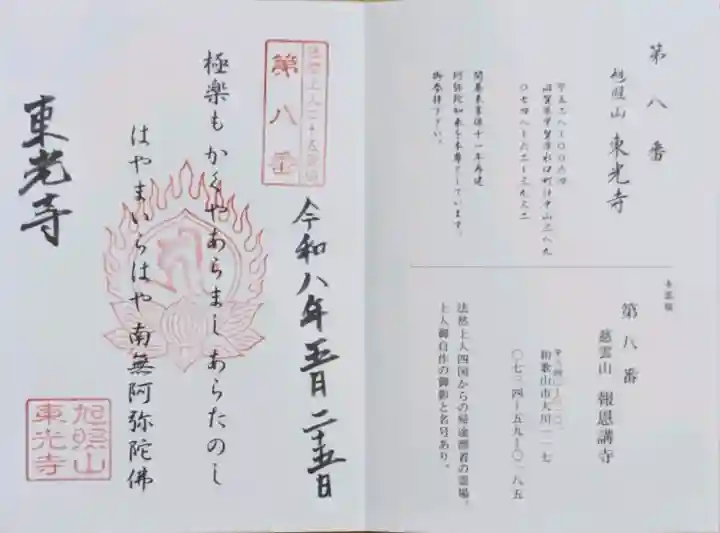 第八番
旭照山 東光寺
滋賀県甲賀郡水口町
〇七四八-六二-三九三二
享保十一年再建
阿弥陀如来を本尊としています。
御参拝下さい。
本霊場
第八番
慈雲山 報恩講寺
和歌山市大川一一七
〇七三四-五九-〇一八五
法然上人四国からの帰途漂着の霊場。
上人御自作の御影と名号あり。
法然上人二十五霊場
第八番
令和八年五月二十五日
極楽も かくやあらまし あらたのし
はやまいらはや 南無阿弥陀佛
東光寺
旭照山
東光寺